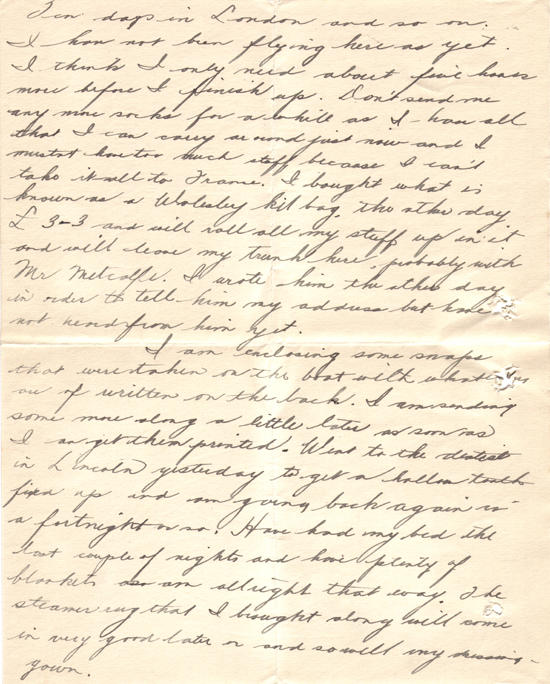 Ten days in London and so on.
I have not been flying here as yet.
I think I only need about five hours
more before I finish up. Don't send me
any more socks for a while as I have all
that I can carry around just now and I
mustnt have too much stuff because I can't
take it all to France. I bought what is
known as a Wolseley kit bag, the other day
£ 3-3 and will roll all my stuff up in it
and will leave my trunk here, probably with
Mr Metcalfe. I wrote him the other day
in order to tell him my address but have
not heard from him yet.
I am enclosing some snaps
that were taken on the boat with what
are of written on the back. I am sending
some more along a little later as soon as
I can get them printed. Went to the dentist
in Lincoln yesterday to get a hollow tooth
fixed up and am going back again in
a fortnight or so. Have had my bed the
last couple of nights and have plenty of
blankets so am allright that way. The
steamer rug that I brought along will come
in very good later on and so will my dressing-
gown.